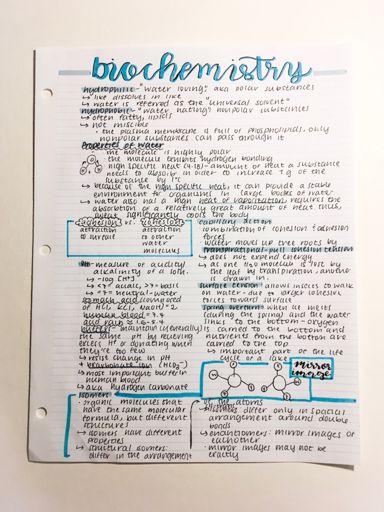 biochemistry
hydrophilic - "water loving" aka polar substances
↳ "like dissolves in like"
↳ water is referred as the "universal solvent"
hydrophobic - "water hating" nonpolar substances
↳ often fatty, lipids
↳ not miscible
• the plasma membrane is full of phospholipids. only
nonpolar substances can pass through it
Properties of water
the molecule is highly polar
the molecule exhibits hydrogen bonding
high specific heat (4.18) - amount of heat a substance
needs to absorb in order to increase 1 g of the
substance by 1°C
↳ because of the high specific heat, it can provide a stable
environment for organisms in large bodies of water
↳ water also has a high heat of vaporization; requires the
absorption of a relatively great amount of heat thus,
sweat significantly cools the body
adhesion vs. cohesion
attraction attraction
to surface to other
water
molecules
capillary action
combination of cohesion & adhesion
forces
↳ water moves up tree roots by
transpirational-pull cohesion tension
↳ does not expend energy
↳ as one H₂O molecule is lost by
the leaf by transpiration, another
is drawn in.
surface tension allows insects to walk
on water - due to larger cohesive
forces toward surface
spring overturn when ice melts
(during the spring) and the water
sinks to the bottom - oxygen
is carried to the bottom and
nutrients from the bottom are
carried to the top
↳ important part of the life
cycle of a lake
pH - measure of acidity/
alkalinity of a soln.
↳ -log [H⁺]
↳ <7 = acidic, >7 = basic
↳ =7 = neutral - water
stomach acid (composed
of HCl, KCl, NaCl) = 2
human blood = 7.4
acid rain =
buffers - maintain (internally)
the same pH by recieving
excess H⁺ or donating when
they're too few
↳ resist change in pH
↳ bicarbonate ion (HCO₃⁻)
↳ most important buffer in
human blood
↳ aka hydrogen carbonate
mirror
image
Isomers
• organic molecules that
have the same molecular
formula, but different
structures
↳ isomers have different
properties
↳ structural isomers:
differ in the arrangement
of the atoms
↳ isomers differ only in spatial
arrangement around double
bonds
↳ enantiomers: mirror images of
eachother
• mirror images may not be
exactly